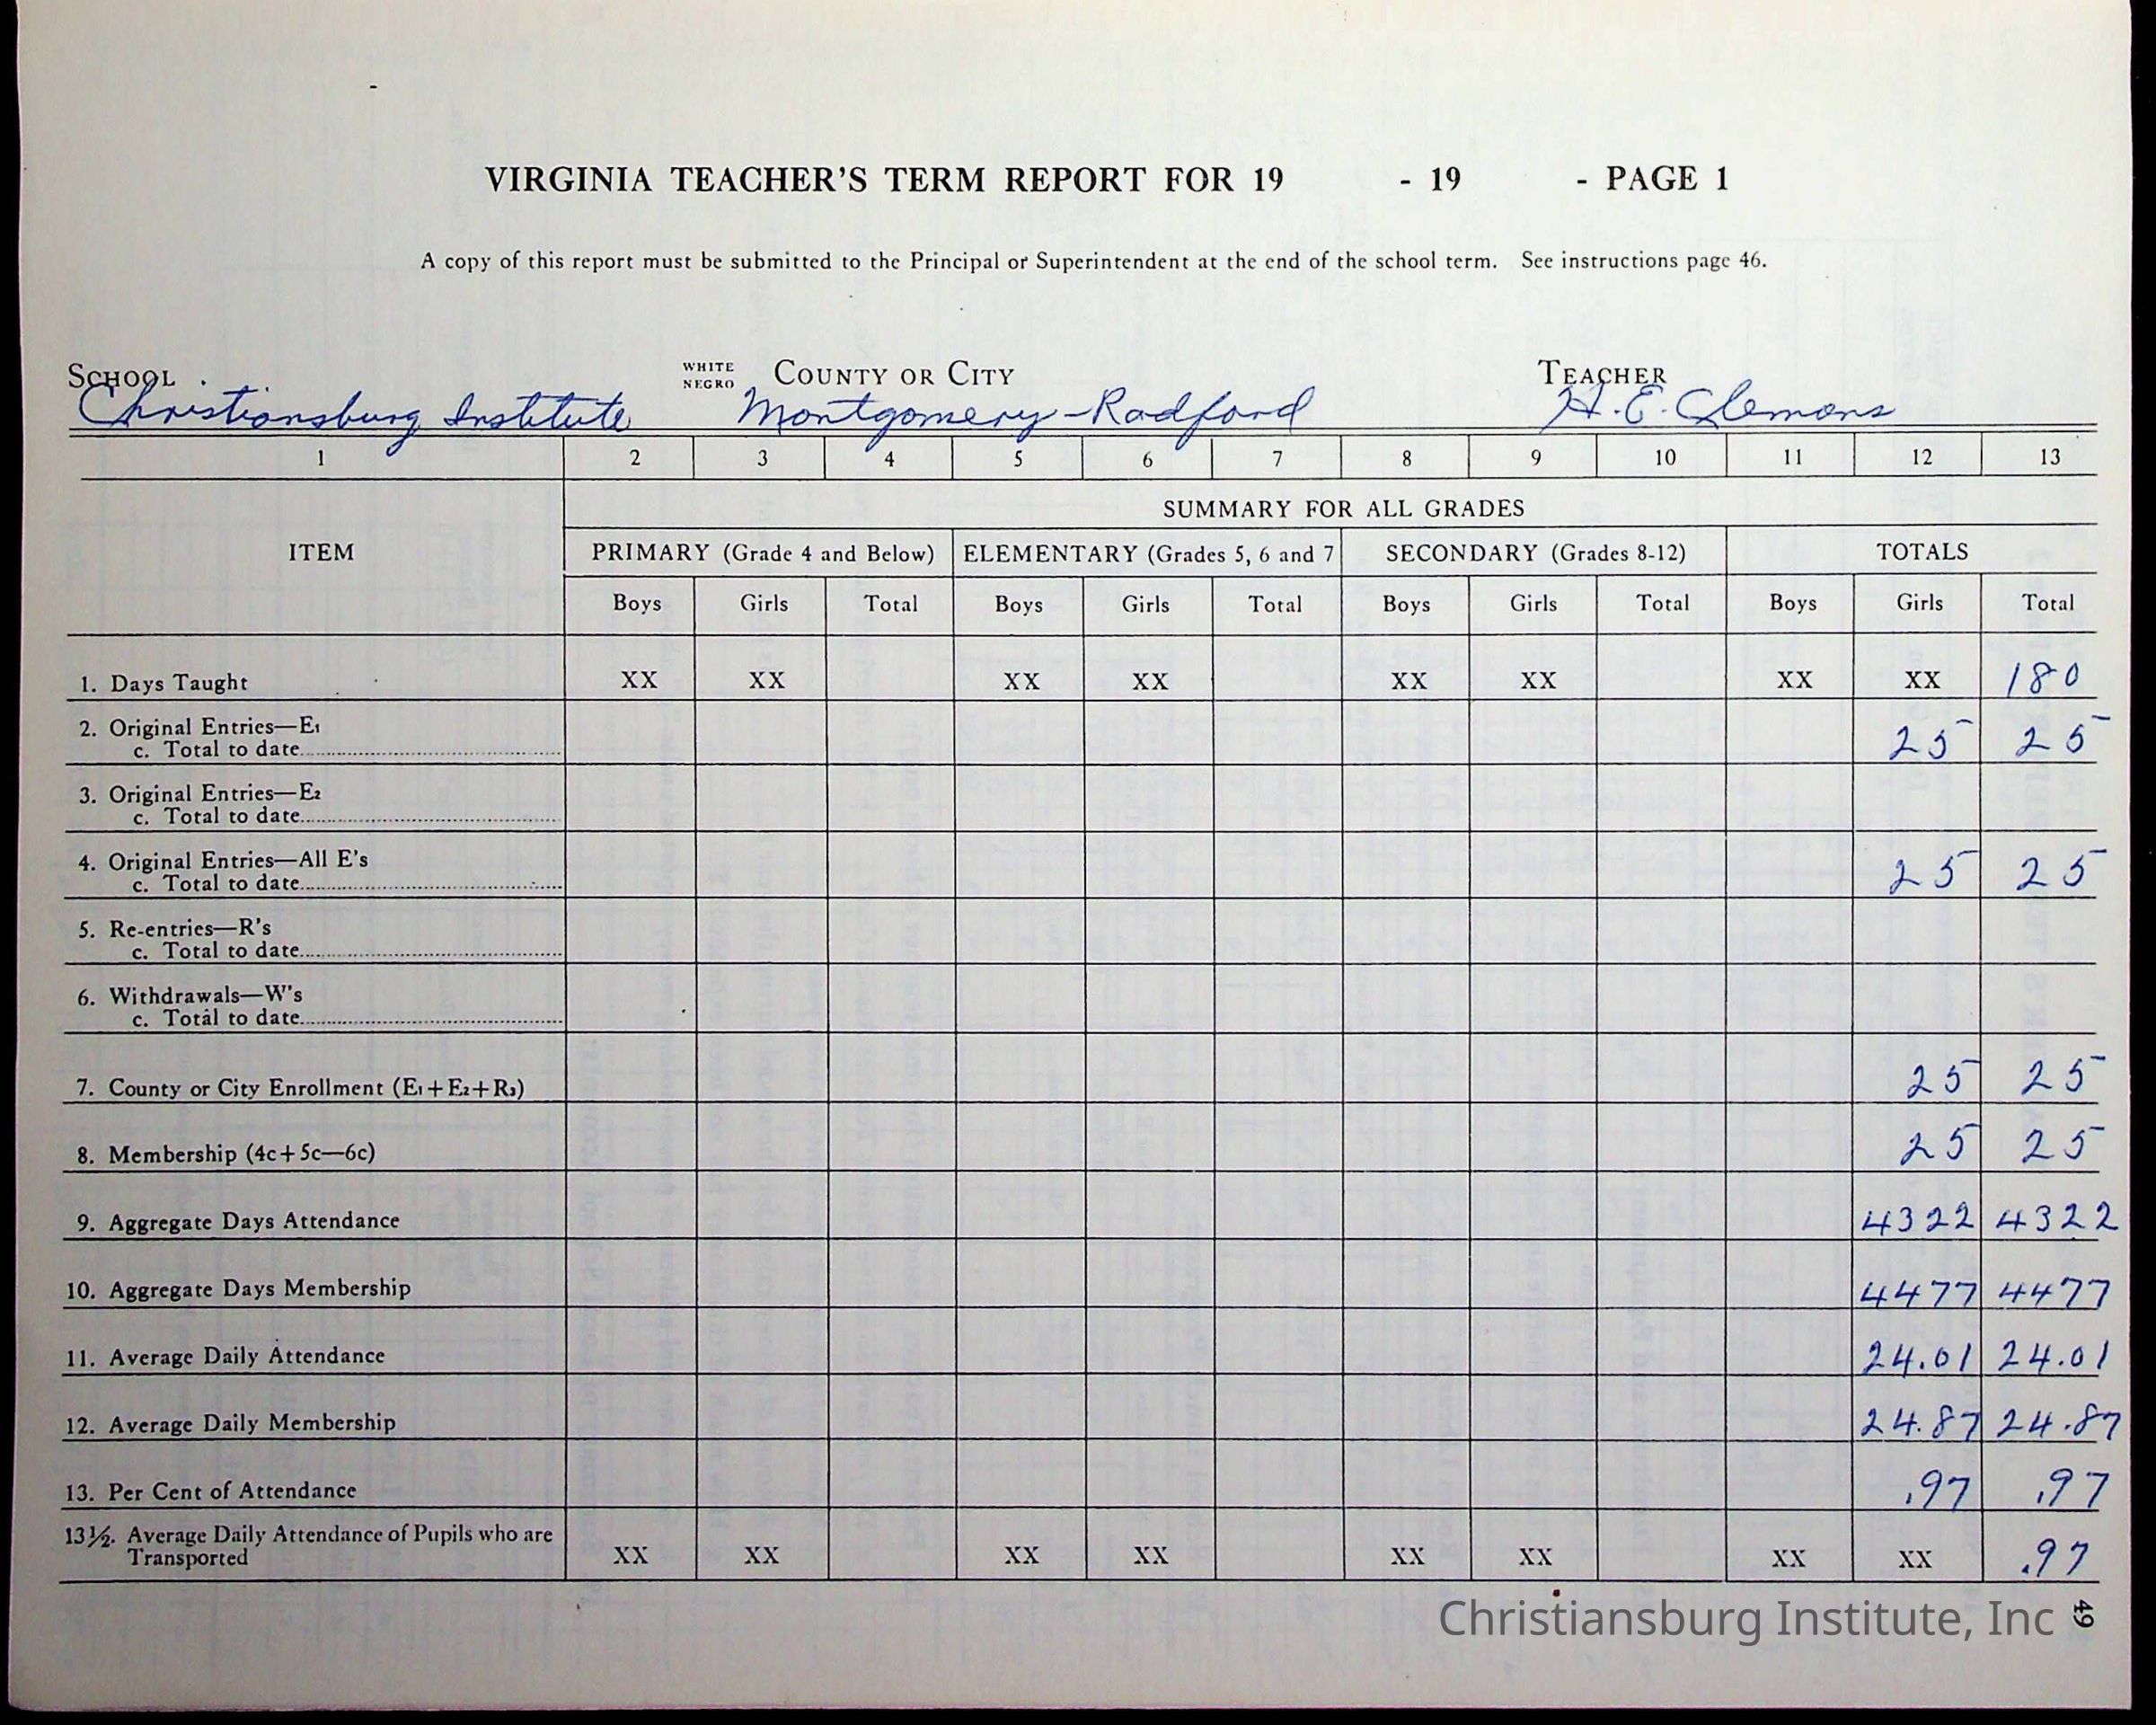 VIRGINIA TEACHER'S TERM REPORT FOR 19 - 19 - PAGE 1
A copy of this report must be submitted to the Principal or Superintendent at the end of the school term. See instructions page 46.
SCHOOL WHITE NEGRO COUNTY OR CITY TEACHER
Christiansburg Institute Montgomery-Radford H. E. Clemons
1 2 3 4 5 6 7 8 9 10 11 12 13
SUMMARY FOR ALL GRADES
ITEM PRIMARY (Grade 4 and Below) ELEMENTARY (Grades 5, 6 and 7 SECONDARY (Grades 8-12) TOTALS
Boys Girls Total Boys Girls Total Boys Girls Total Boys Girls Total
1. Days Taught XX XX XX XX XX XX XX XX 180
2. Original Entries—E1
c. Total to date 25 25
3. Original Entries—E2
c. Total to date
4. Original Entries—All E's
c. Total to date 25 25
5. Re-entries—R's
c. Total to date
6. Withdrawals—W's
c. Total to date
7. County or City Enrollment (E1+E2+R3) 25 25
8. Membership (4c+5c—6c) 25 25
9. Aggregate Days Attendance 4322 4322
10. Aggregate Days Membership 4477 4477
11. Average Daily Attendance 24.01 24.01
12. Average Daily Membership 24.87 24.87
13. Per Cent of Attendance .97 .97
13½. Average Daily Attendance of Pupils who are
Transported XX XX XX XX XX XX XX XX .97
Christiansburg Institute, Inc 49